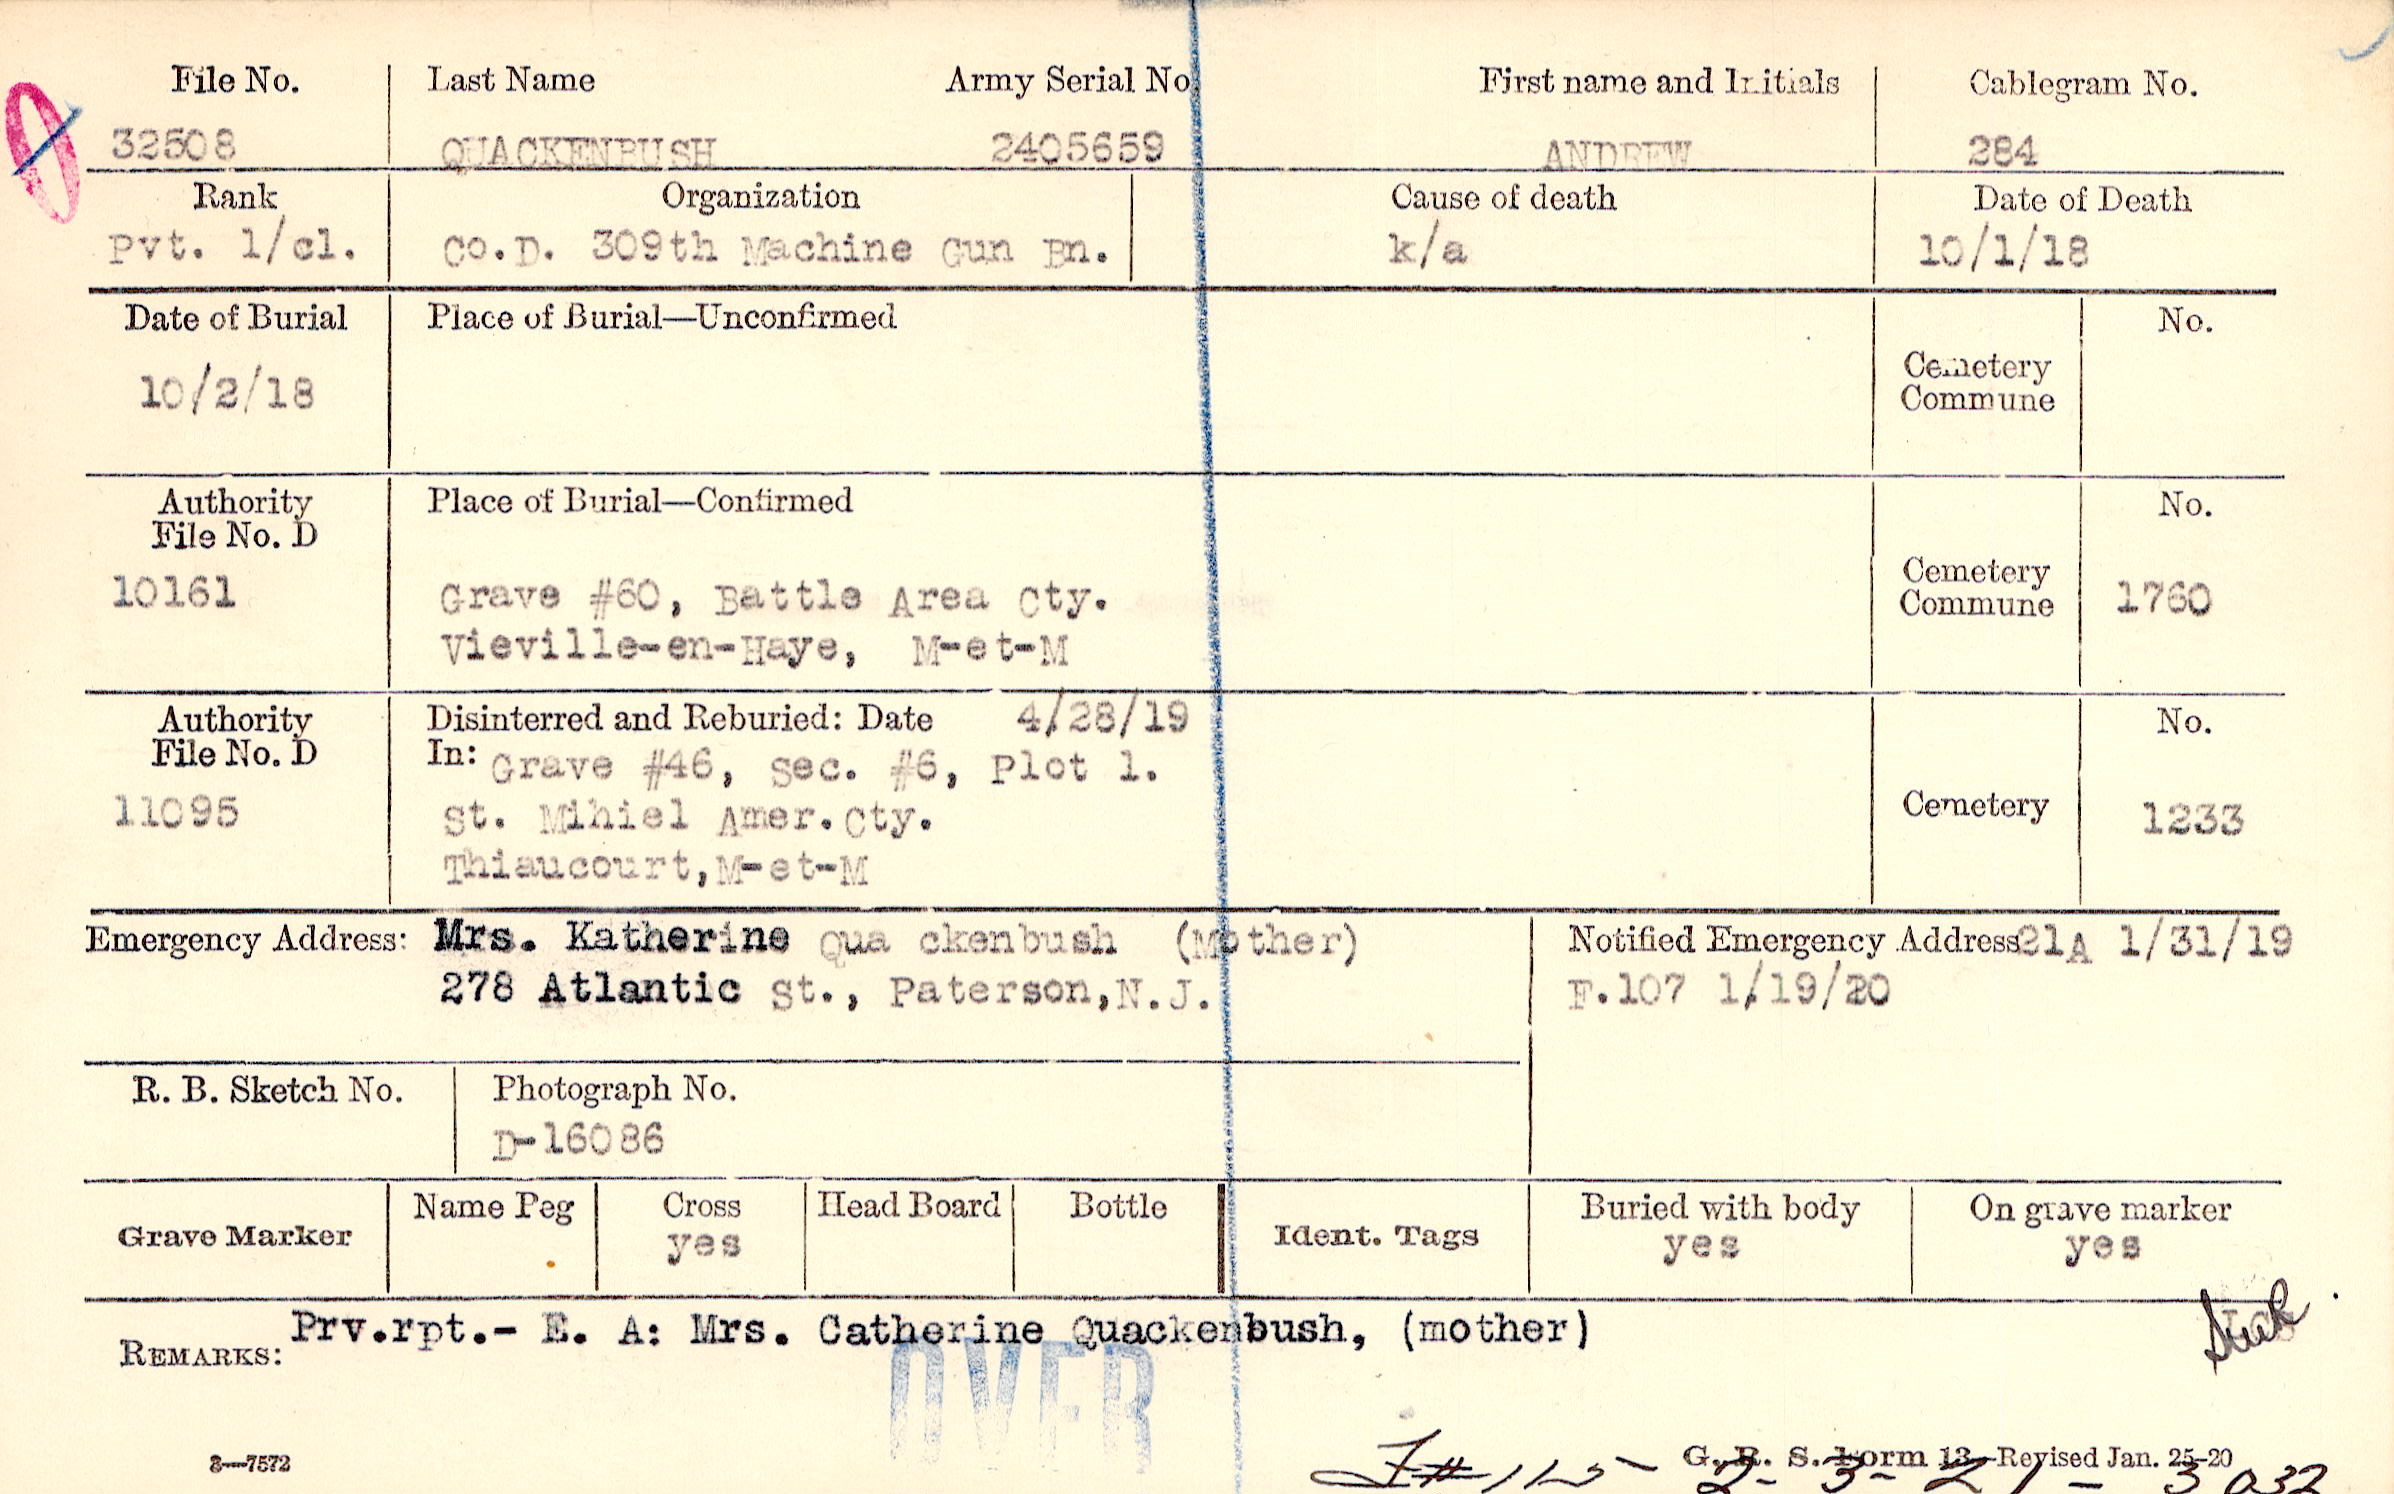 File No. Last Name Army Serial No. First name and Initials Cablegram No.
32508 QUACKENBUSH 2405659 ANDREW 284
Rank Organization Cause of death Date of Death
Pvt. 1/cl. Co.D. 309th Machine Gun Bn. k/a 10/1/18
Date of Burial Place of Burial—Unconfirmed No.
10/2/18
Cemetery
Commune
Authority Place of Burial—Confirmed No.
File No. D
10161 Grave #60, Battle Area Cty.
Vieville-en-Haye, M-et-M
Cemetery
Commune 1760
Authority Disinterred and Reburied: Date 4/28/19 No.
File No. D In: Grave #46, Sec. #6, Plot 1.
11095 St. Mihiel Amer.Cty. Cemetery 1233
Thiaucourt,M-et-M
Emergency Address: Mrs. Katherine Qua ckenbush (Mother) Notified Emergency Address 21A 1/31/19
278 Atlantic St., Paterson,N.J. F.107 1/19/20
R. B. Sketch No. Photograph No.
D-16086
Grave Marker Name Peg Cross Head Board Bottle Ident. Tags Buried with body On grave marker
yes yes yes
REMARKS: Prv.rpt.- E. A: Mrs. Catherine Quackenbush, (mother)
OVER
3—7572 G. R. S. Form 13—Revised Jan. 25-20
2-3-21-3032